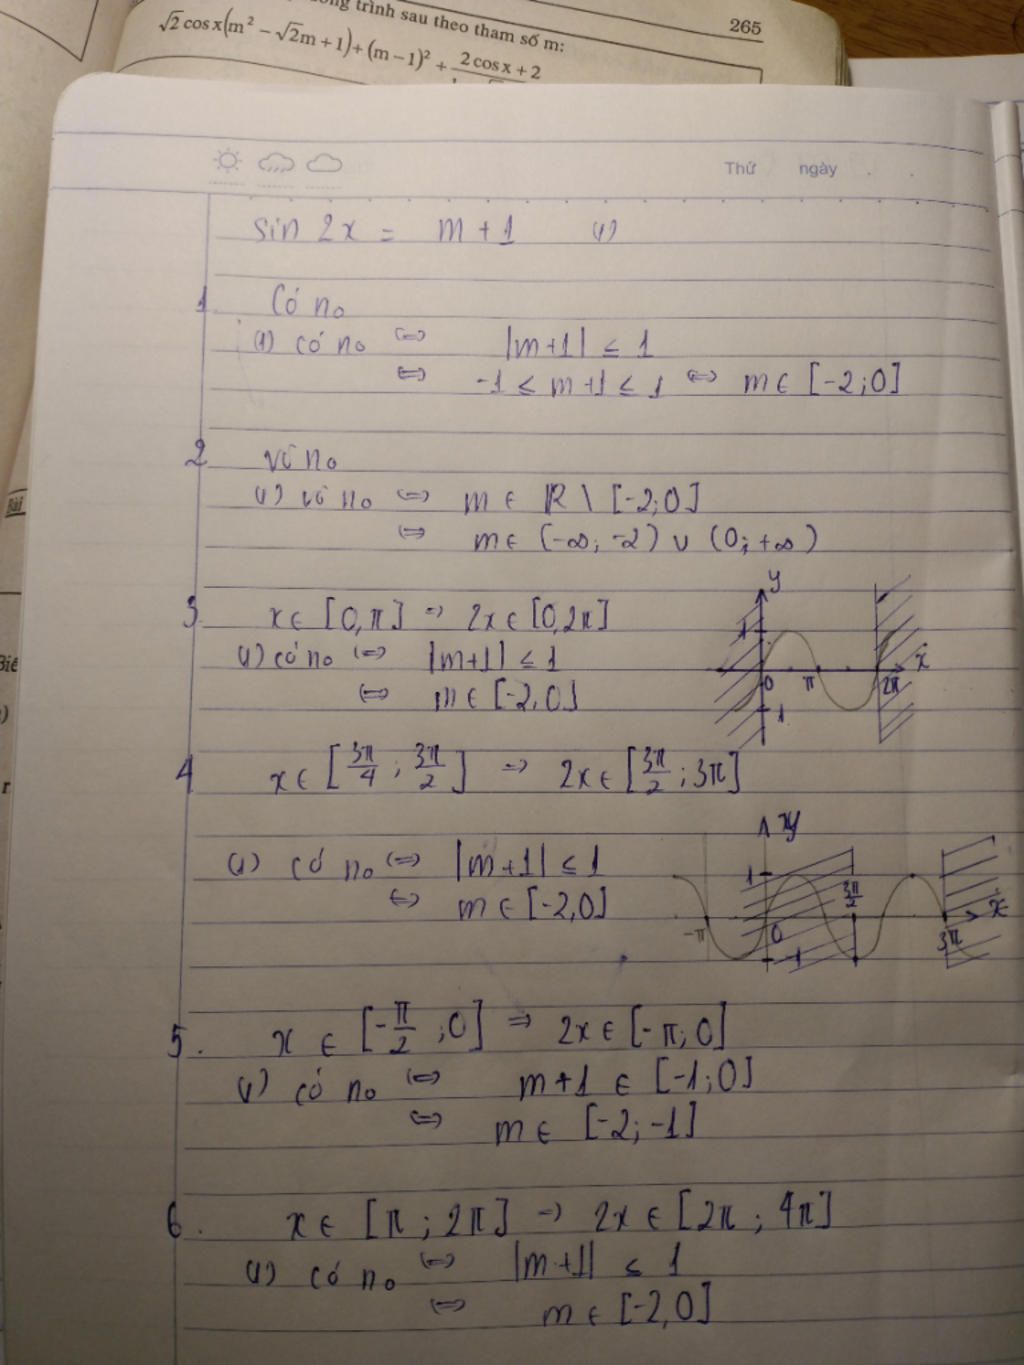 trình sau theo tham số m:
265
√2 cos x(m² − √2m + 1) + (m − 1)² + 2 cos x + 2
Thứ ngày
sin 2x = m + 1 (1)
1 Có no
(1) có no ⇔ |m+1| ≤ 1
⇔ -1 ≤ m+1 ≤ 1 ⇔ m ∈ [-2;0]
2 vô no
(1) vô no ⇔ m ∈ R \ [-2;0]
⇔ m ∈ (-∞; -2) ∪ (0; +∞)
3 x ∈ [0,π] ⇒ 2x ∈ [0,2π]
(1) có no ⇔ |m+1| ≤ 1
⇔ m ∈ [-2,0]
y
1
0 π 2π x
-1
4 x ∈ [3π/4 ; 3π/2] ⇒ 2x ∈ [3π/2 ; 3π]
(1) có no ⇔ |m+1| ≤ 1
⇔ m ∈ [-2,0]
y
1 3π/2
-π 0 3π x
-1
5. x ∈ [-π/2 ; 0] ⇒ 2x ∈ [-π; 0]
(1) có no ⇔ m+1 ∈ [-1;0]
⇔ m ∈ [-2; -1]
6. x ∈ [π ; 2π] ⇒ 2x ∈ [2π ; 4π]
(1) có no ⇔ |m+1| ≤ 1
⇔ m ∈ [-2,0]